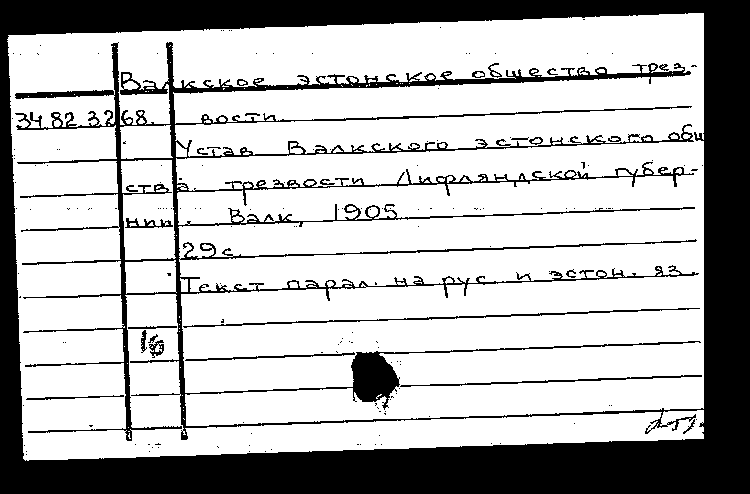 Валкское эстонское общество трез-
34.82.3268. вости.
Устав Валкского эстонского общ
ства трезвости Лифляндской губер-
нии. Валк, 1905
29 с.
Текст парал. на рус и эстон. яз.
16